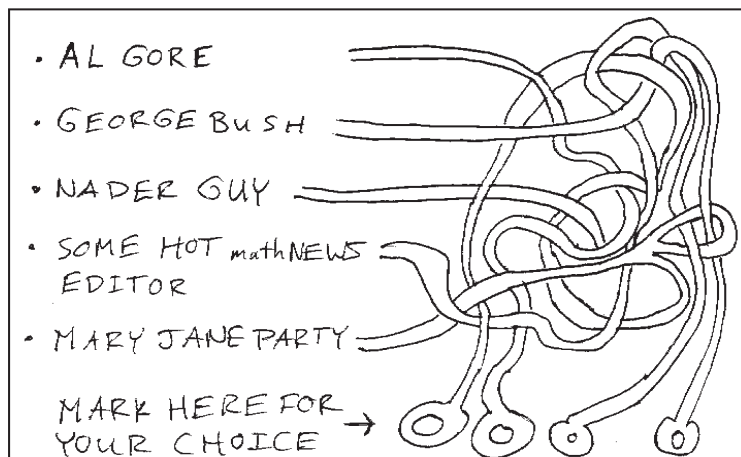 • AL GORE
• GEORGE BUSH
• NADER GUY
• SOME HOT mathNEWS
EDITOR
• MARY JANE PARTY
MARK HERE FOR
YOUR CHOICE →